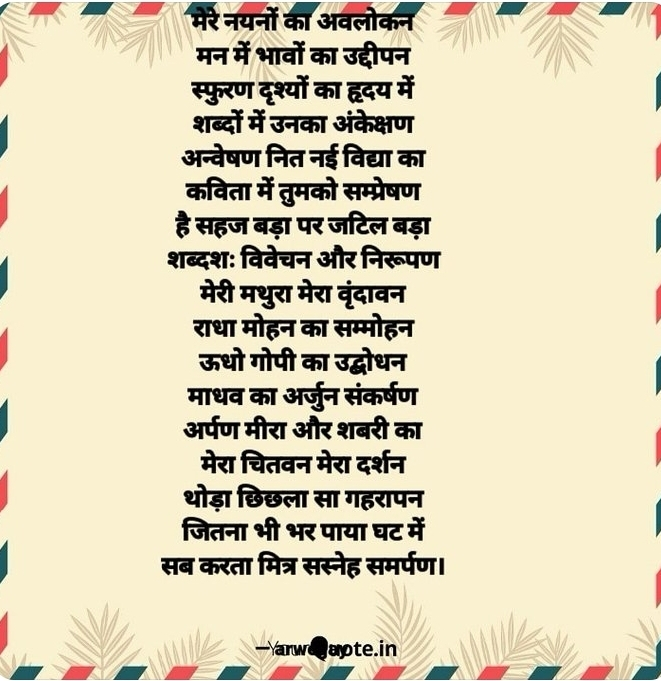 मेरे नयनों का अवलोकन
मन में भावों का उद्दीपन
स्फुरण दृश्यों का हृदय में
शब्दों में उनका अंकेक्षण
अन्वेषण नित नई विद्या का
कविता में तुमको सम्प्रेषण
है सहज बड़ा पर जटिल बड़ा
शब्दशः विवेचन और निरूपण
मेरी मथुरा मेरा वृंदावन
राधा मोहन का सम्मोहन
ऊधो गोपी का उद्बोधन
माधव का अर्जुन संकर्षण
अर्पण मीरा और शबरी का
मेरा चितवन मेरा दर्शन
थोड़ा छिछला सा गहरापन
जितना भी भर पाया घट में
सब करता मित्र सस्नेह समर्पण।